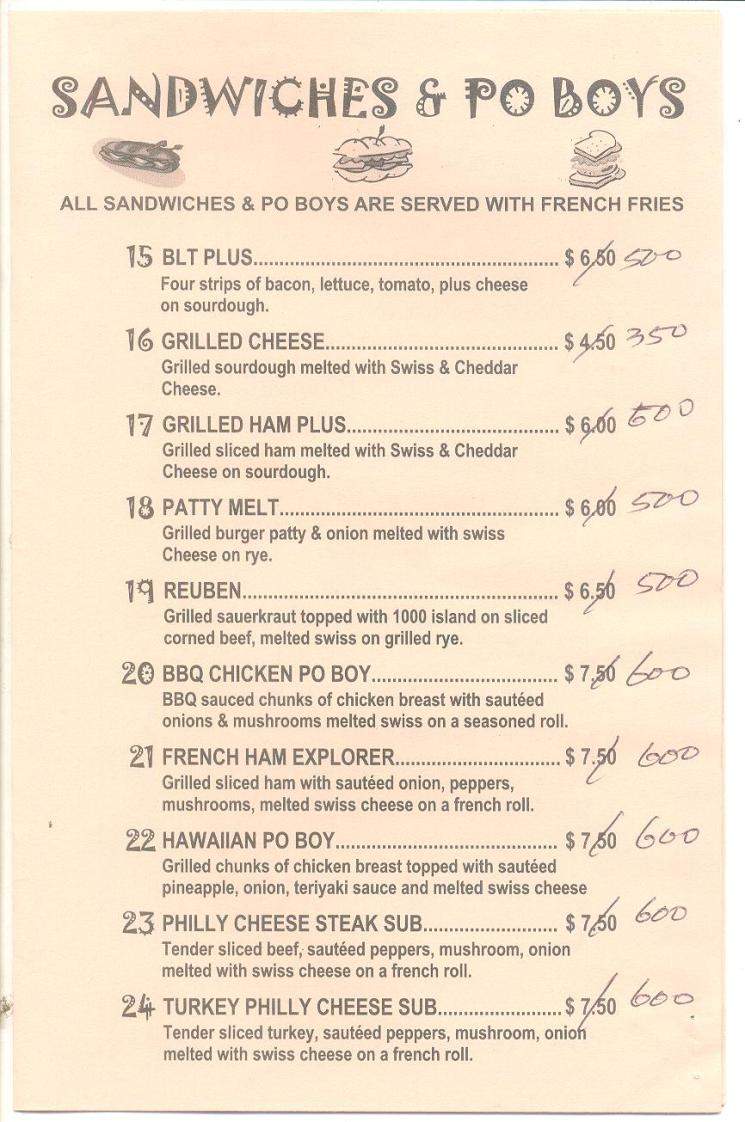 SANDWICHES & PO BOYS
ALL SANDWICHES & PO BOYS ARE SERVED WITH FRENCH FRIES
15 BLT PLUS.......................................................... $ 6.50 500
Four strips of bacon, lettuce, tomato, plus cheese
on sourdough.
16 GRILLED CHEESE............................................ $ 4.50 350
Grilled sourdough melted with Swiss & Cheddar
Cheese.
17 GRILLED HAM PLUS........................................ $ 6.00 500
Grilled sliced ham melted with Swiss & Cheddar
Cheese on sourdough.
18 PATTY MELT..................................................... $ 6.00 500
Grilled burger patty & onion melted with swiss
Cheese on rye.
19 REUBEN............................................................ $ 6.50 500
Grilled sauerkraut topped with 1000 island on sliced
corned beef, melted swiss on grilled rye.
20 BBQ CHICKEN PO BOY................................... $ 7.50 600
BBQ sauced chunks of chicken breast with sautéed
onions & mushrooms melted swiss on a seasoned roll.
21 FRENCH HAM EXPLORER............................... $ 7.50 600
Grilled sliced ham with sautéed onion, peppers,
mushrooms, melted swiss cheese on a french roll.
22 HAWAIIAN PO BOY.......................................... $ 7.50 600
Grilled chunks of chicken breast topped with sautéed
pineapple, onion, teriyaki sauce and melted swiss cheese
23 PHILLY CHEESE STEAK SUB.......................... $ 7.50 600
Tender sliced beef, sautéed peppers, mushroom, onion
melted with swiss cheese on a french roll.
24 TURKEY PHILLY CHEESE SUB........................ $ 7.50 600
Tender sliced turkey, sautéed peppers, mushroom, onion
melted with swiss cheese on a french roll.